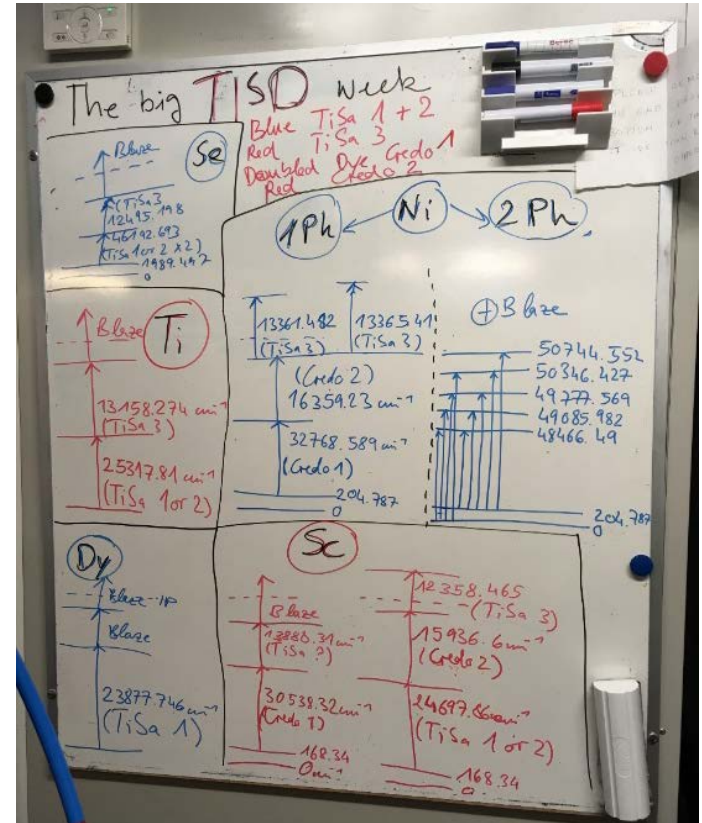 The big TISD week
Blue TiSa 1 + 2
Red TiSa 3
Doubled Dye Credo 1
Red Credo 2
Se
Blaze
(TiSa3
12495.198
46192.693
(TiSa 1 or 2 x2)
1989.497
0
Ti
Blaze
13158.274 cm⁻¹
(TiSa 3)
25317.81 cm⁻¹
(TiSa 1 or 2)
1Ph ← Ni → 2 Ph
13361.482
(TiSa 3)
13365.41
(TiSa 3)
(Credo 2)
16359.23 cm⁻¹
32768.589 cm⁻¹
(Credo 1)
204.787
0
+ Blaze
50744.552
50346.427
49777.569
49085.982
48466.49
204.787
0
Dy
Blaze
Blaze
23877.746 cm⁻¹
(TiSa 1)
Sc
Blaze
13880.31 cm⁻¹
(TiSa ?)
30538.32 cm⁻¹
(Credo 1)
168.34
0 cm⁻¹
12358.465
(TiSa 3)
15936.6 cm⁻¹
(Credo 2)
24697.86 cm⁻¹
(TiSa 1 or 2)
168.34
0